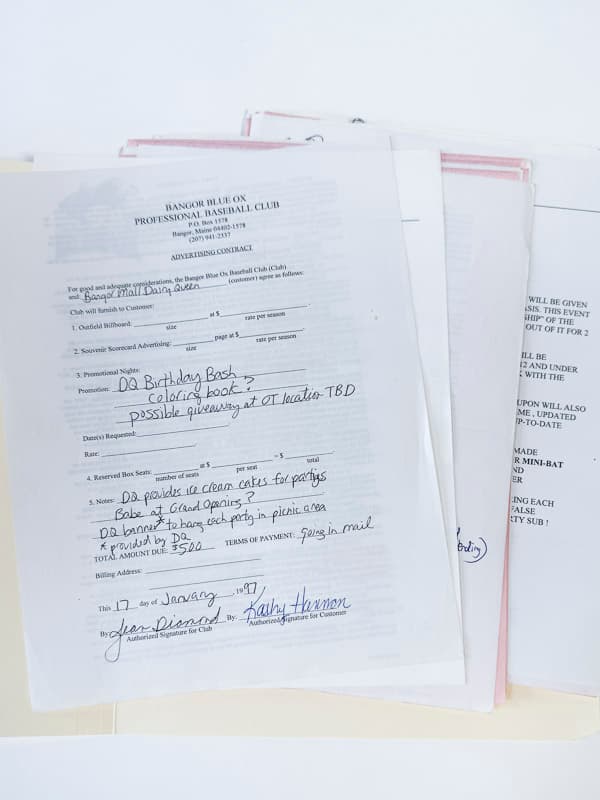 BANGOR BLUE OX
PROFESSIONAL BASEBALL CLUB
P.O. Box 1578
Bangor, Maine 04402-1578
(207) 941-2337
ADVERTISING CONTRACT
For good and adequate considerations, the Bangor Blue Ox Baseball Club (Club)
and: Bangor Mall Dairy Queen (customer) agree as follows:
Club will furnish to Customer:
1. Outfield Billboard: at $ .
size rate per season
2. Souvenir Scorecard Advertising: page at $ .
size rate per season
3. Promotional Nights:
Promotion: DQ Birthday Bash
coloring book?
possible giveaway at OT location TBD
Date(s) Requested:
Rate:
4. Reserved Box Seats: at $ = $ .
number of seats per seat total
5. Notes: DQ provides ice cream cakes for partys
Babe at Grand Opening?
DQ banner* to hang each party in picnic area
* provided by DQ
TOTAL AMOUNT DUE: $500 TERMS OF PAYMENT: going in mail
Billing Address:
This 17 day of January, 1997
By: Jean Diamond By: Kathy Harmon
Authorized Signature for Club Authorized Signature for Customer
WILL BE GIVEN
THIS EVENT
OF THE
OUT OF IT FOR 2
WILL BE
12 AND UNDER
WITH THE
UPON WILL ALSO
UPDATED
UP-TO-DATE
MADE
MINI-BAT
ND
ER
ING EACH
FALSE
RTY SUB !
ending)